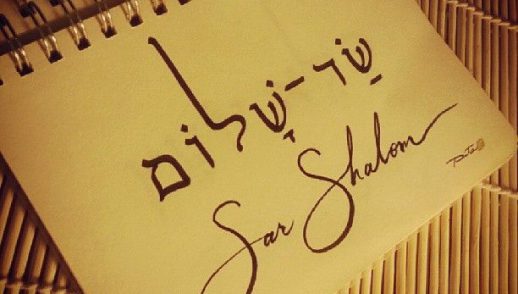 שַׂר-שָׁלוֹם
Sar Shalom